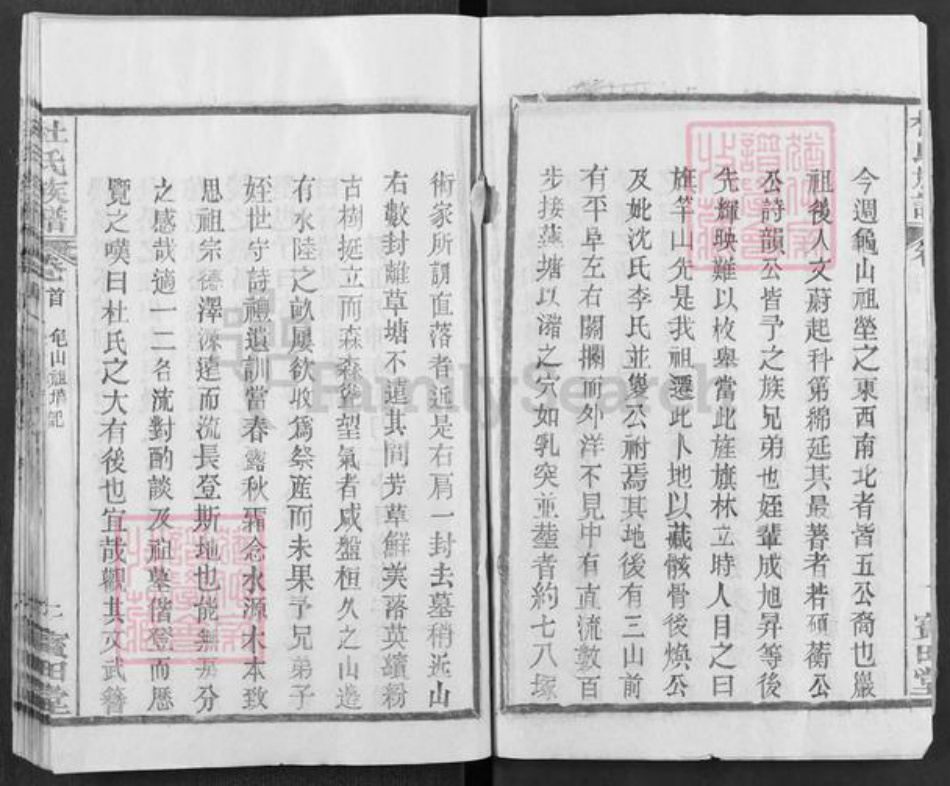 今週龜山祖塋之東西南北者皆五公裔也巖
祖後人文蔚起科第綿延其最著者若碩蘅公
丕詩韻公皆予之族兄弟也姪輩成旭昇等後
先輝映難以枚舉當此旌旗林立時人目之曰
旗竿山先是我祖遷此卜地以藏骸骨後煥公
及妣沈氏李氏並燮公祔焉其地後有三山前
有平阜左右關攔而外洋不見中有直流數百
步接蓮塘以瀦之穴如乳突並塟者約七八塚
術家所謂直落者近是右肩一封去墓稍近山
右數封離草塘不遠其間芳草鮮美落英繽粉
古樹挺立而森森聳望氣者咸盤桓久之山邊
有水陸之畝屢欲收為祭產而未果予兄弟子
姪世守詩禮遺訓當春露秋霜念水源木本致
思祖宗德澤深遠而流長登斯地也能無
分
之感哉適一二名流對酌談及祖塋偕登而歷
覽之嘆曰杜氏之大有後也宜哉觀其文武簪
杜氏族譜
卷首
龜山祖墳記
二
寶田堂
FamilySearch